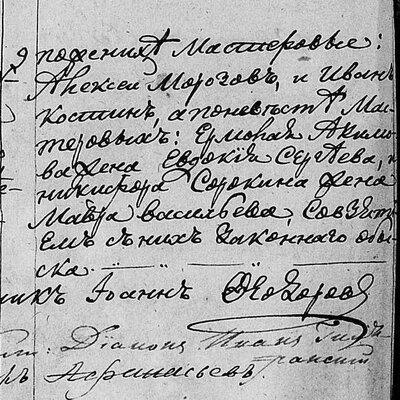 9 поженихѣ Мастеровые:
Алексей Морозовъ, и Иванъ
костинъ, а поневѣстѣ Мас-
теровыхъ: Ермолая Акимо-
ва жена Евдокія Сергѣева, и
никифора Сорокина жена
Мавра васильева, Совзят-
емъ сънихъ Законнаго обы-
ска.
Іоаннъ Ѳеодоровъ
Діаконъ Иванъ
Афанасьевъ